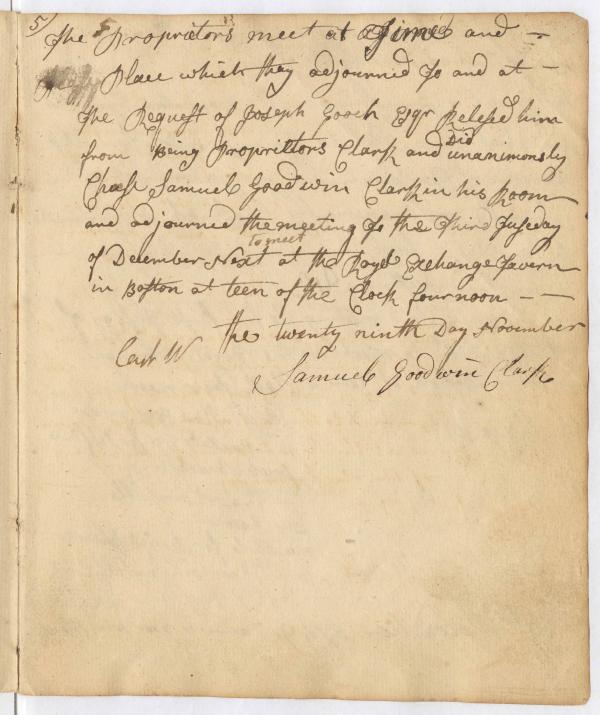 5
The Proprietors meet at a Time and —
Place which they adjourned to and at —
the Request of Joseph Gooch Esqr Relesed him
from Being Proprittors Clark and Did unanimonsly
Chuse Samuel Goodwin Clark in his Room
and adjourned the meeting to the Third Tuseday
of December Next to meet at the Royel Exchange Tavern
in Boston at teen of the Clock fournoon — —
the twenty ninth Day November
Samuel Goodwin Clark